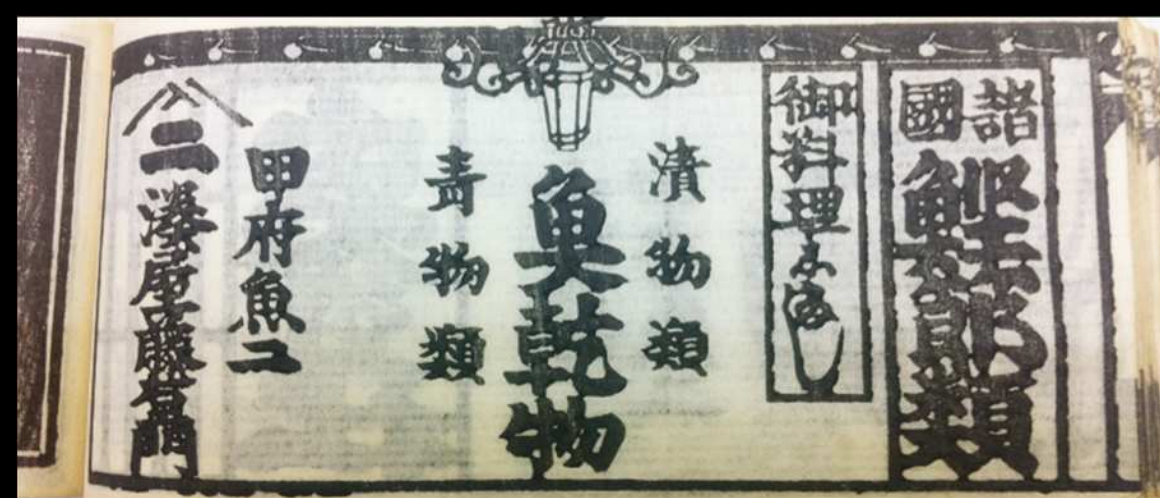 諸國鰹節類
御料理
漬物類
魚乾物
青物類
甲府魚
二湊屋藤右衛門